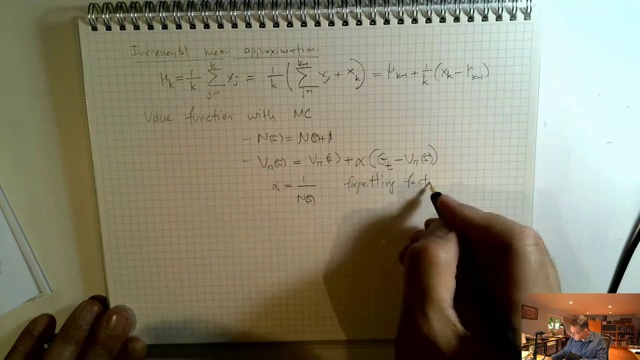 Incremental mean approximation:
μ_k = 1/k ∑_{j=1}^{k} x_j = 1/k ( ∑_{j=1}^{k-1} x_j + x_k ) = μ_{k-1} + 1/k (x_k - μ_{k-1})
Value function with MC
- N(s) = N(s)+1
- V_π(s) = V_π(s) + α (G_t - V_π(s))
α = 1/N(s) forgetting fact